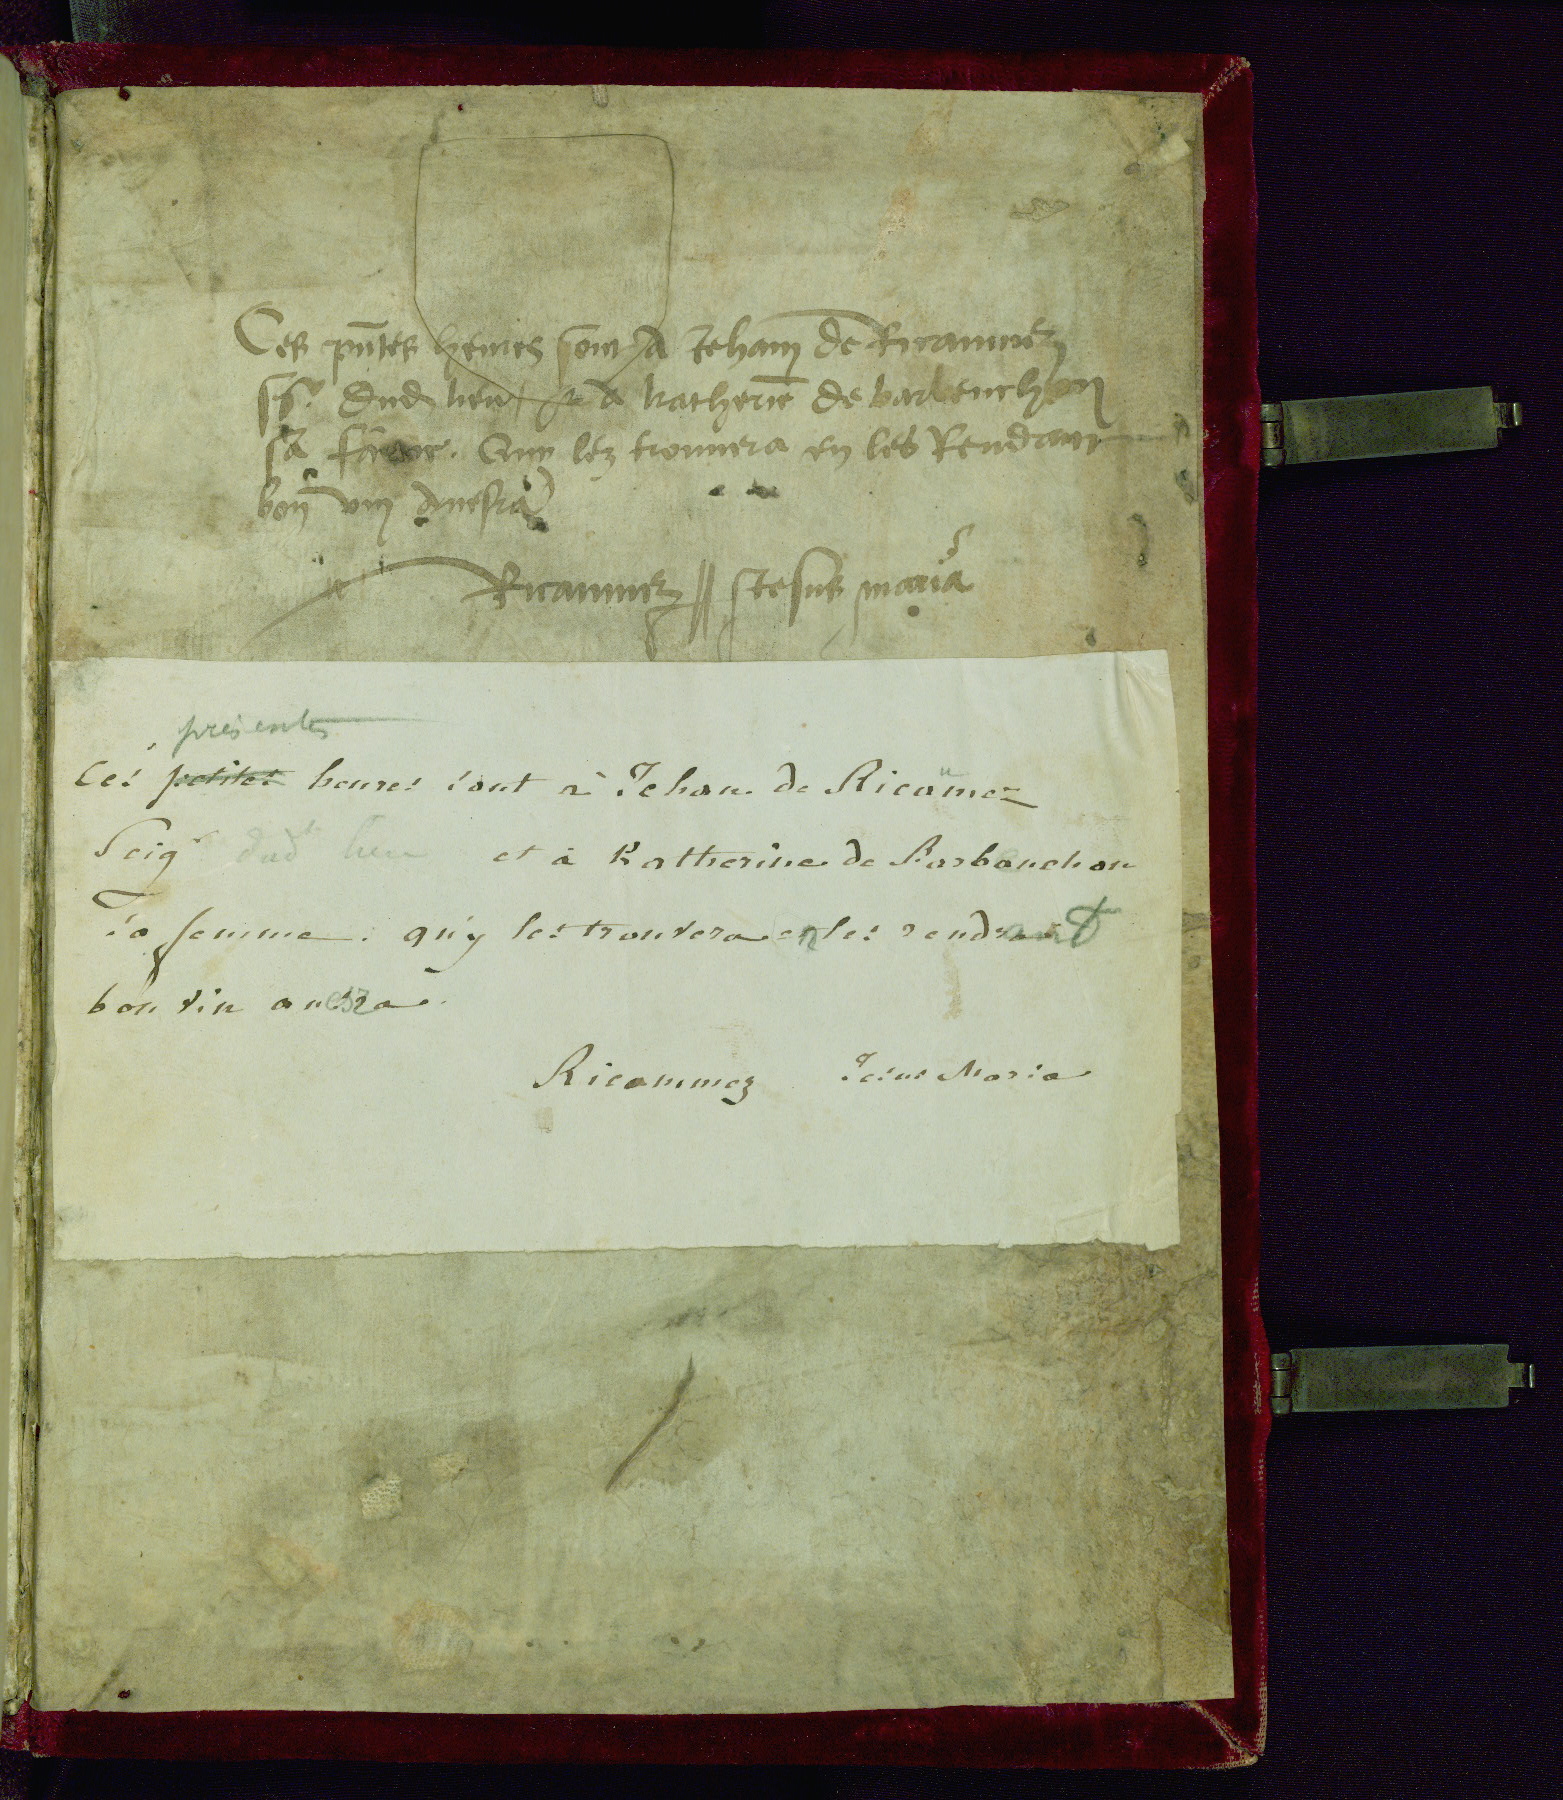 Ces pntes heures sont A Jehan de Ricammez
sgr. dud lieu et A katherine de barbenchon
sa fame. Quy lez trouuera en les Rendant
bon vin auesra
Ricammez Jesus maria
presentes
Ces petites heures sont à Jehan de Ricaumez
Seigr dudt lieu et à Katherine de Barbenchon
Sa femme. quy les trouvera en les rendrant
bon vin auesra.
Ricammez Jesus Maria